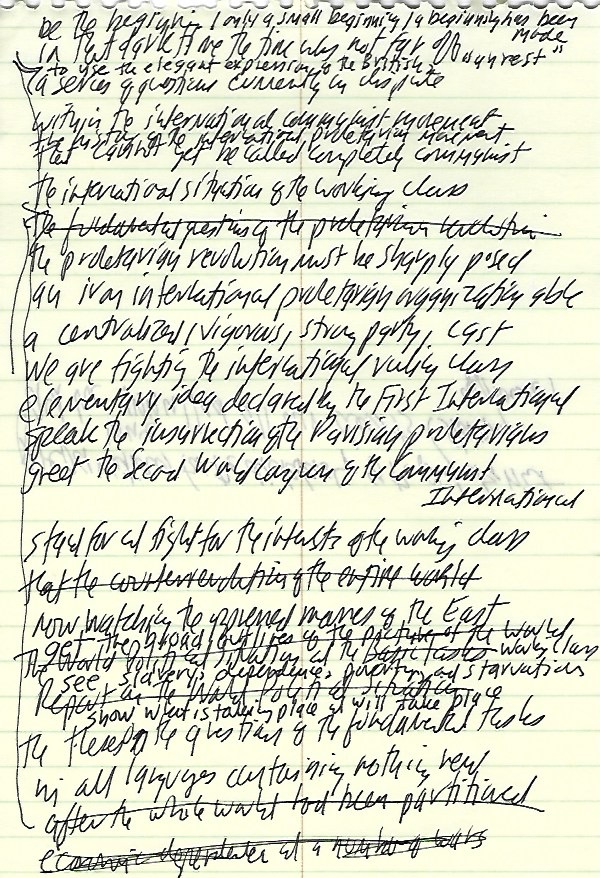 be the beginni. / only a small beginning / a beginning has been made
in that dark time the time was not far off "unrest"
to use the elegant expression of the British
a series of questions currently in dispute
within the international communist movement
the history of the international proletarian movement
that cannot yet be called completely communist
the international situation of the working class
the fundamental questions of the proletarian revolution
the proletarian revolution must be sharply posed
an iron international proletarian organization able
a centralized, vigorous, strong party, cast
we are fighting the international ruling class
elementary idea declared by the First International
speak the insurrection of the Parisian proletarians
greet the Second World Congress of the Communist
International
stand for and fight for the interests of the working class
that the counterrevolution of the entire world
now watching the oppressed masses of the East
get the broad outlines of the picture of the world
The World political situation and the basic tasks working class
see slavery, dependence, poverty, and starvation
Report on the World political situation
show what is taking place and will take place
the theses on the questions of the fundamental tasks
in all languages containing nothing new
after the whole world had been partitioned
economic dependence at a number of wars